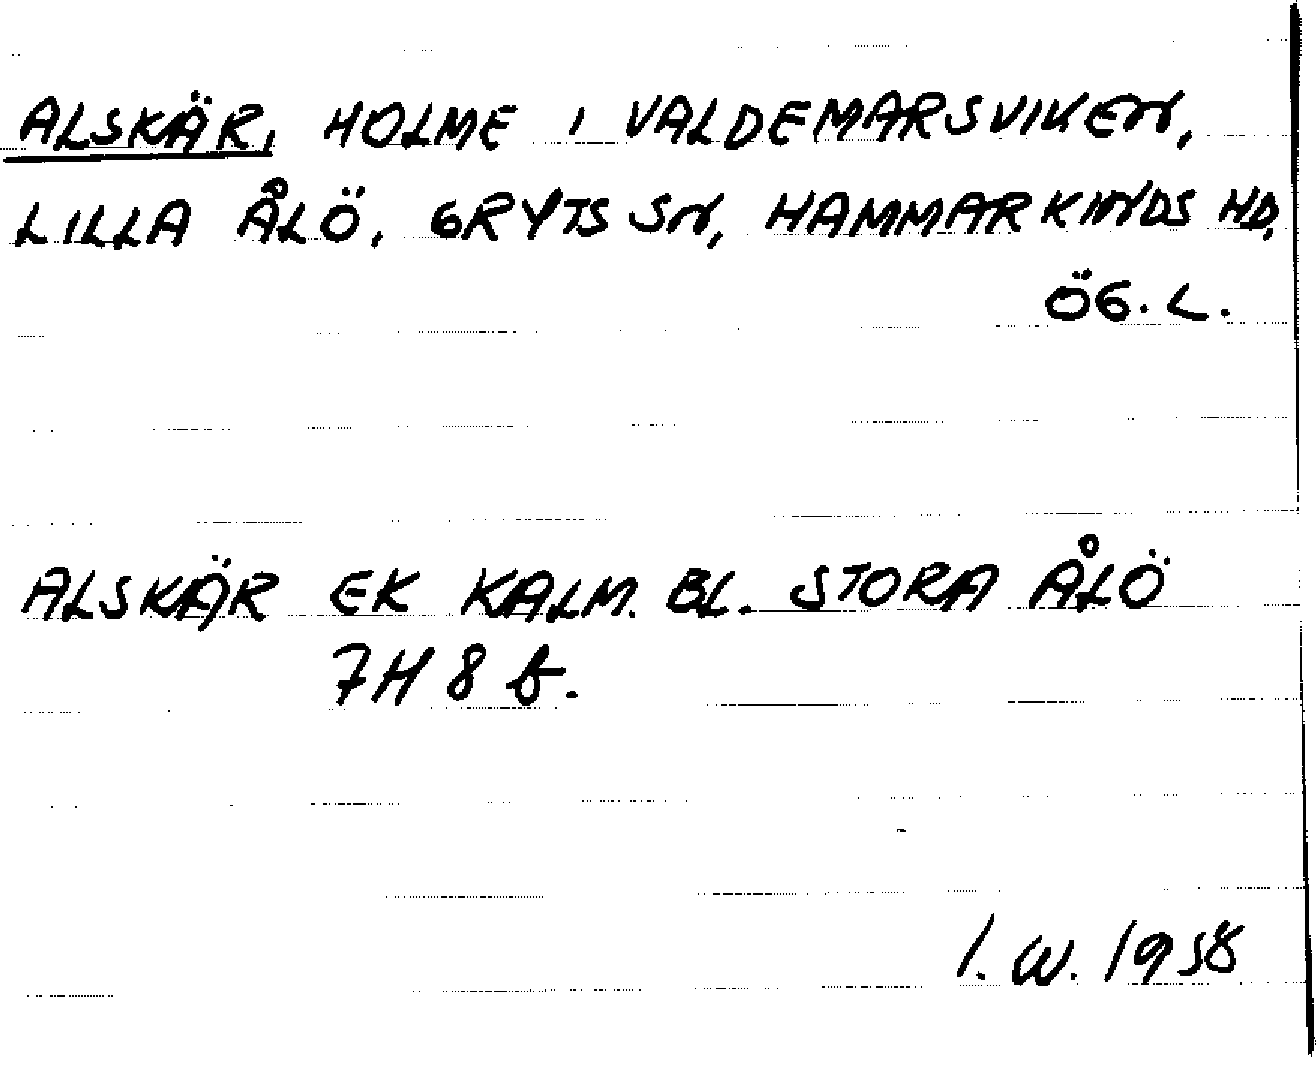 ALSKÄR, HOLME I VALDEMARSVIKEN,
LILLA ÅLÖ, GRYTS SN, HAMMARKINDS HD,
ÖG. L.
ALSKÄR EK KALM. BL. STORA ÅLÖ
7H 8 b.
I. W. 1958